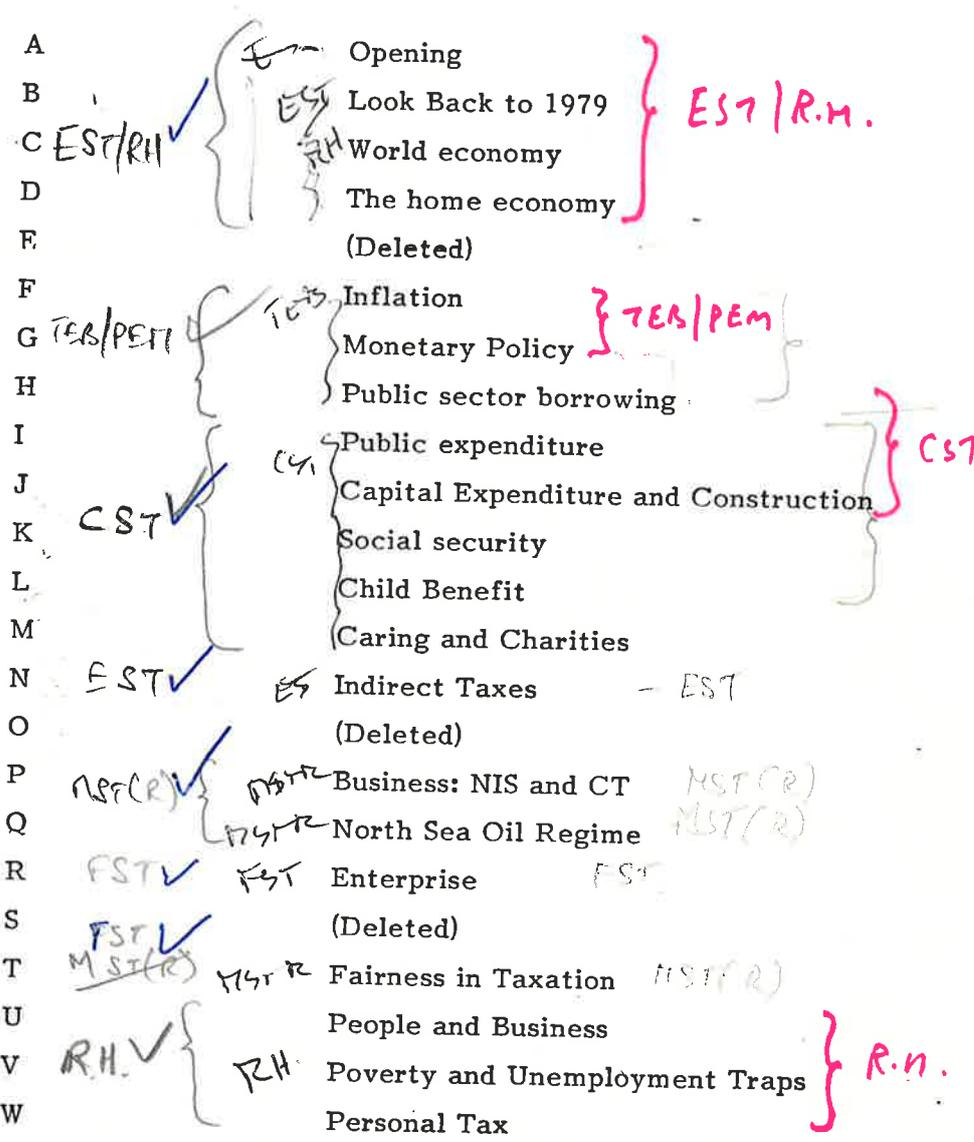 A Opening
B EST Look Back to 1979 EST/R.H.
C EST/RH RH World economy
D The home economy
E (Deleted)
F Inflation TEB/PEM
G TEB/PEM Monetary Policy
H Public sector borrowing
I Public expenditure
J Capital Expenditure and Construction CST
K CST Social security
L Child Benefit
M Caring and Charities
N EST Indirect Taxes - EST
O (Deleted)
P MST(R) MSTR Business: NIS and CT MST(R)
Q MSTR North Sea Oil Regime MST(R)
R FST FST Enterprise FST
S FST (Deleted)
T MST(R) MSTR Fairness in Taxation MST(R)
U People and Business
V R.H. RH Poverty and Unemployment Traps R.H.
W Personal Tax